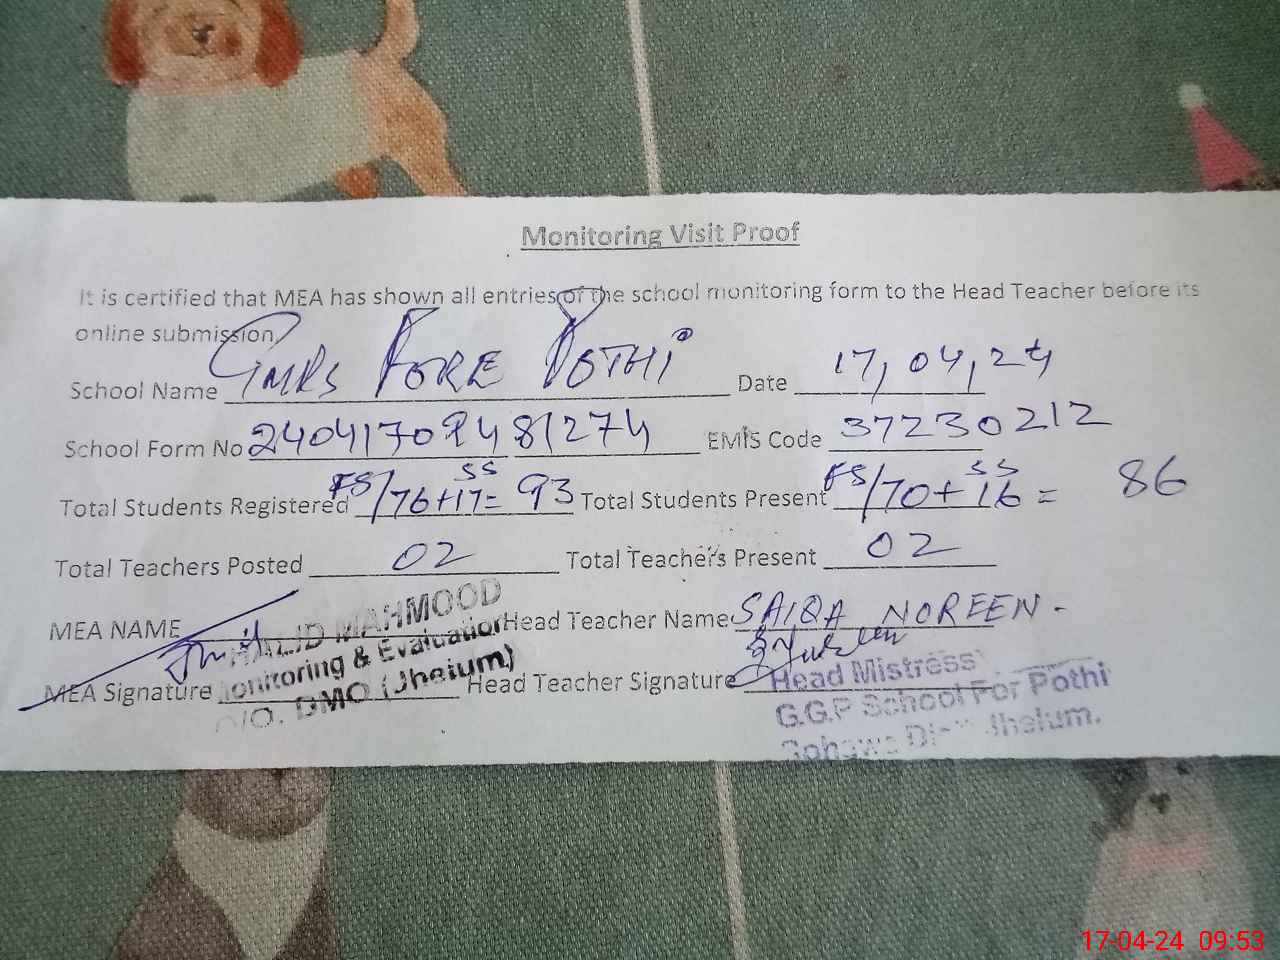 Monitoring Visit Proof
It is certified that MEA has shown all entries of the school monitoring form to the Head Teacher before its
online submission,
School Name GMPS FORE POTHI Date 17,04,24
School Form No 240417094 81274 EMIS Code 37230212
Total Students Registered FS/76+17 SS = 93 Total Students Present FS/70+16 SS = 86
Total Teachers Posted 02 Total Teachers Present 02
MEA NAME KHALID MAHMOOD Head Teacher Name SAIQA NOREEN.
Monitoring & Evaluation
MEA Signature Head Teacher Signature
O/O. DMO (Jhelum)
Head Mistress
G.G.P School For Pothi
Sohawa Jhelum.
17-04-24 09:53